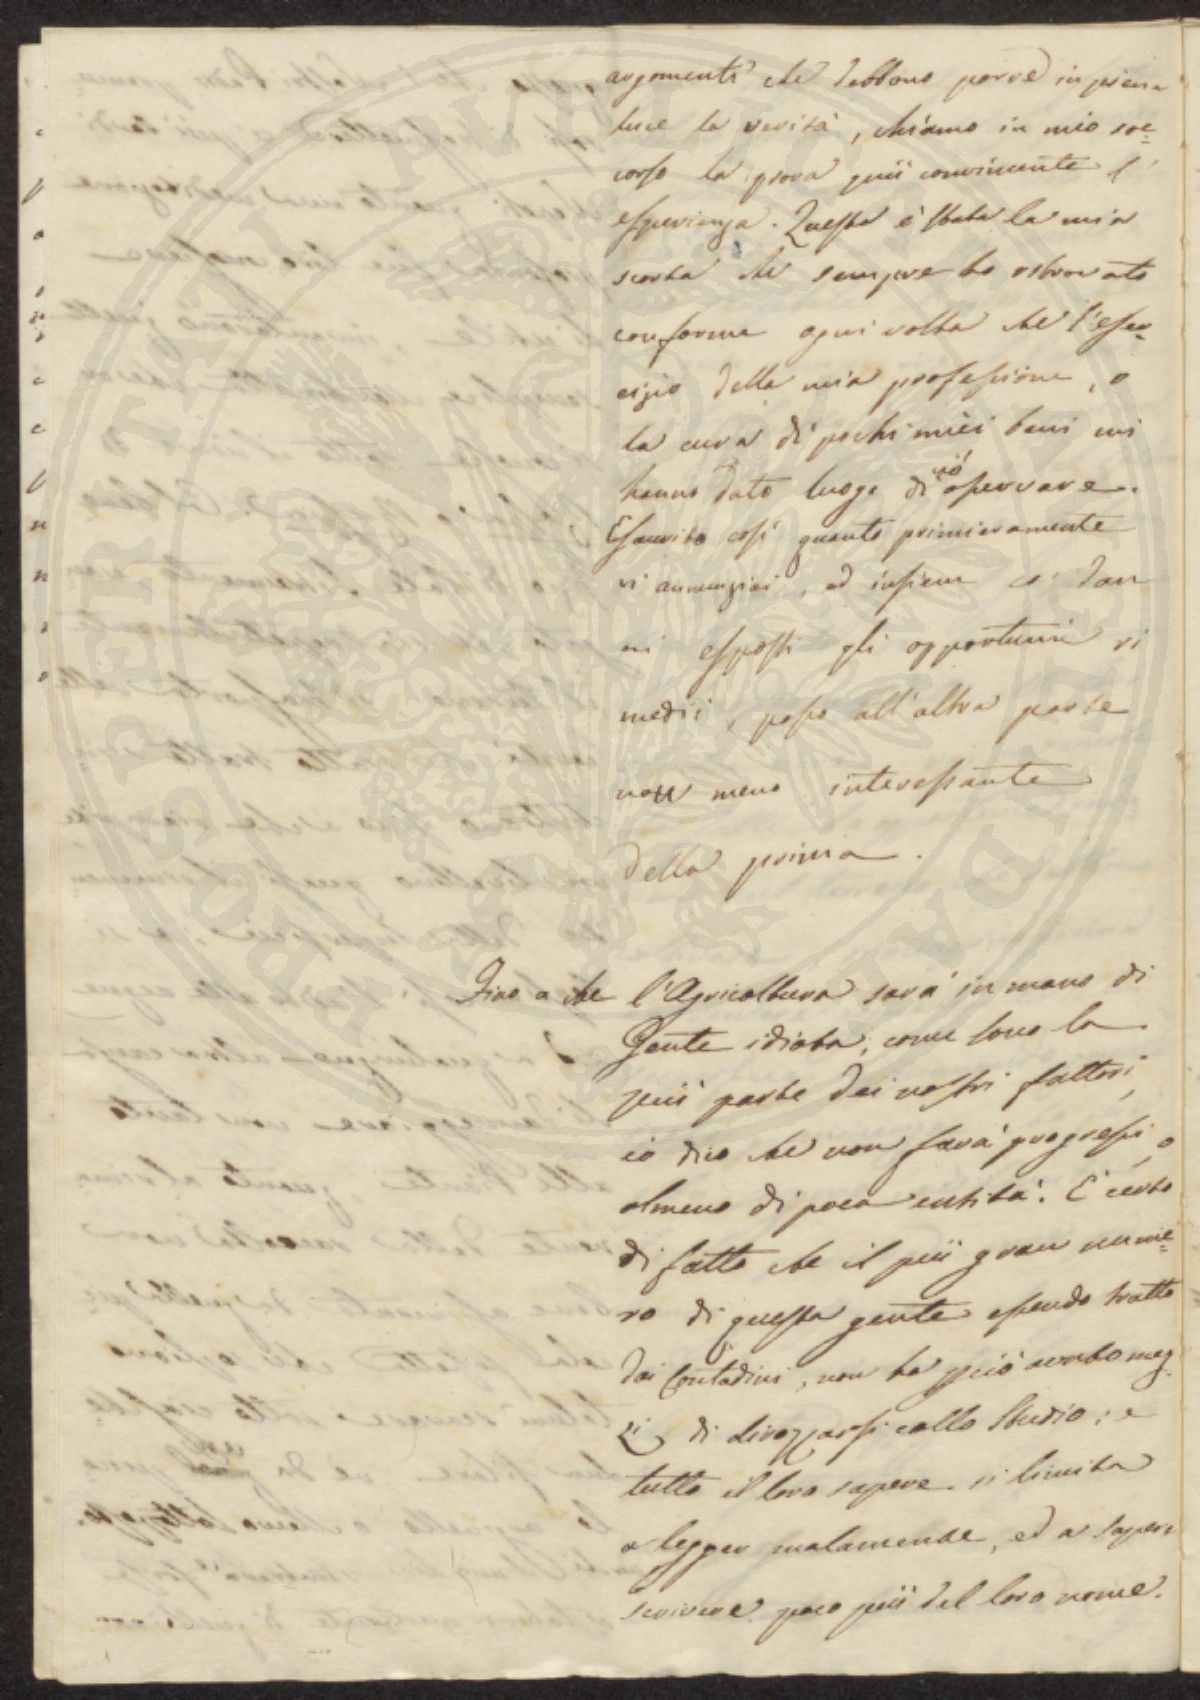 argomenti che debbono porre in piena
luce la verità, chiamo in mio soc=
corso la prova più convincente l'
esperienza. Questa è stata la mia
scorta che sempre ho ritrovato
conforme ogni volta che l'eser=
cizio della mia professione, o
la cura di pochi miei beni mi
hanno dato luogo di ciò osservare.
Esaurito così quanto primieramente
vi annunziai, ed insieme co' dan
ni esposti gli opportuni ri
medii, passo all'altra parte
non meno interessante
della prima.
Fino a che l'Agricoltura sarà in mano di
Gente idiota, come sono la
più parte dei nostri fattori,
io dico che non farà progressi, o
almeno di poca entità. È certo
di fatto che il più gran nume=
ro di questa gente essendo tratta
dai Contadini, non ha più avuto mez=
zi di dirozzarsi collo Studio; e
tutto il loro sapere si limita
a legger malamente, ed a saper
scrivere poco più del loro nome.
PROSPERITATI PVBLICAE AVGENDAE